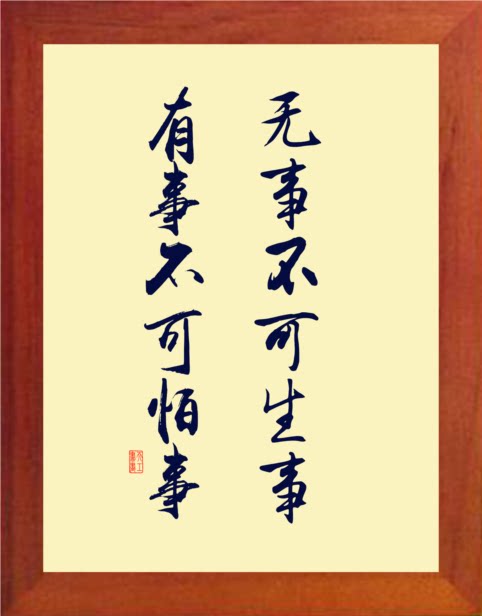 无事不可生事
有事不可怕事